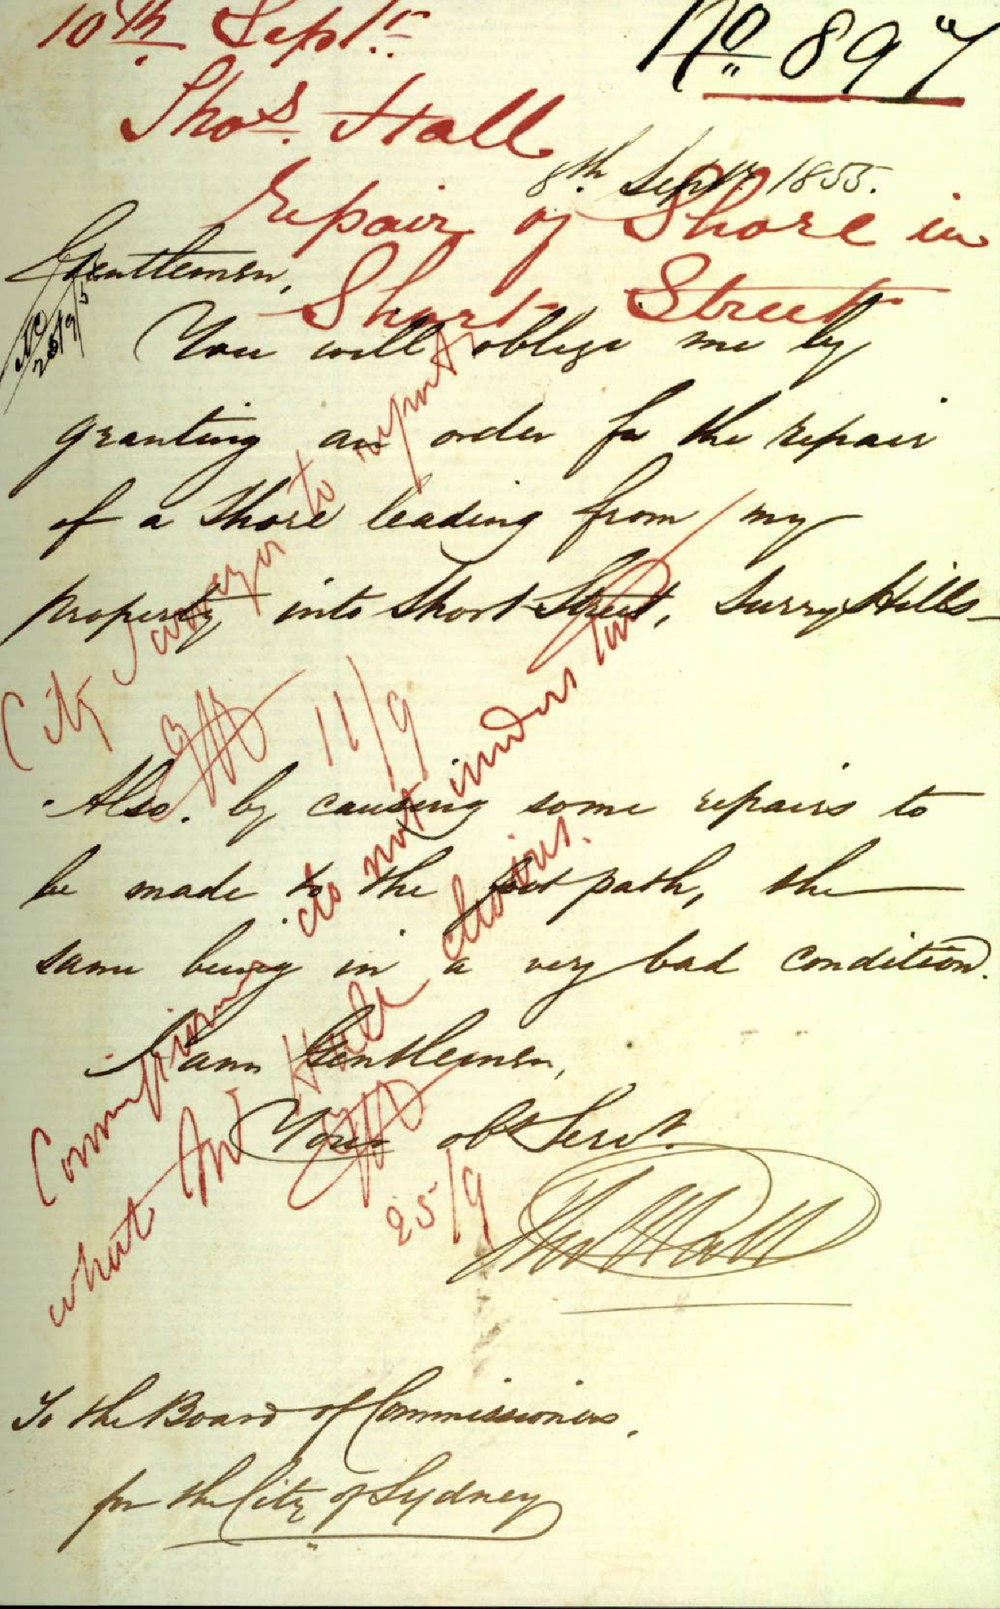 10th Sept.
No 897
Thos. Hall
8th Septr 1855.
repair of Shore in
Short Street
Gentlemen,
You will oblige me by
granting an order for the repair
of a Shore leading from my
property into Short Street, Surry Hills
City Surveyor to report
11/9
Also. by causing some repairs to
be made to the foot path, the
same being in a very bad condition.
I am Gentlemen,
Your obt Servt.
Thos Hall
Commissioners do not understand
what Mr Hall desires.
25/9
To the Board of Commissioners,
for the City of Sydney